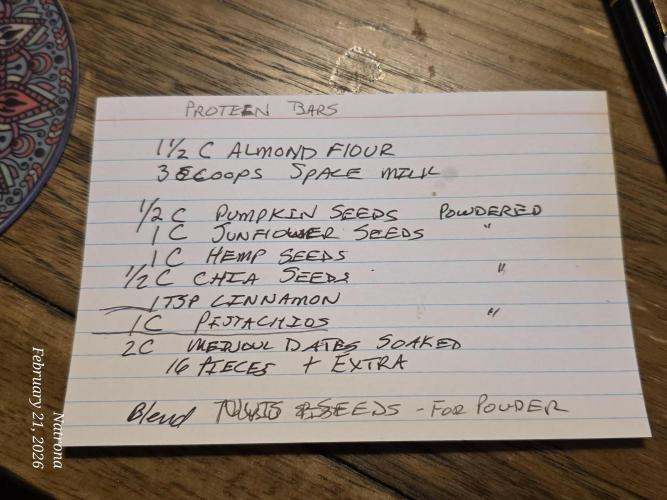 PROTEEN BARS
1 1/2 C ALMOND FLOUR
3 SCOOPS SPACE MILK
1/2 C PUMPKIN SEEDS POWDERED
1 C SUNFLOWER SEEDS "
1 C HEMP SEEDS
1/2 C CHIA SEEDS "
1 TSP CINNAMON
1 C PISTACHIOS "
2C MEDJOUL DATES SOAKED
16 PIECES + EXTRA
Blend NUTS & SEEDS - FOR POWDER
Natrona
February 21, 2026